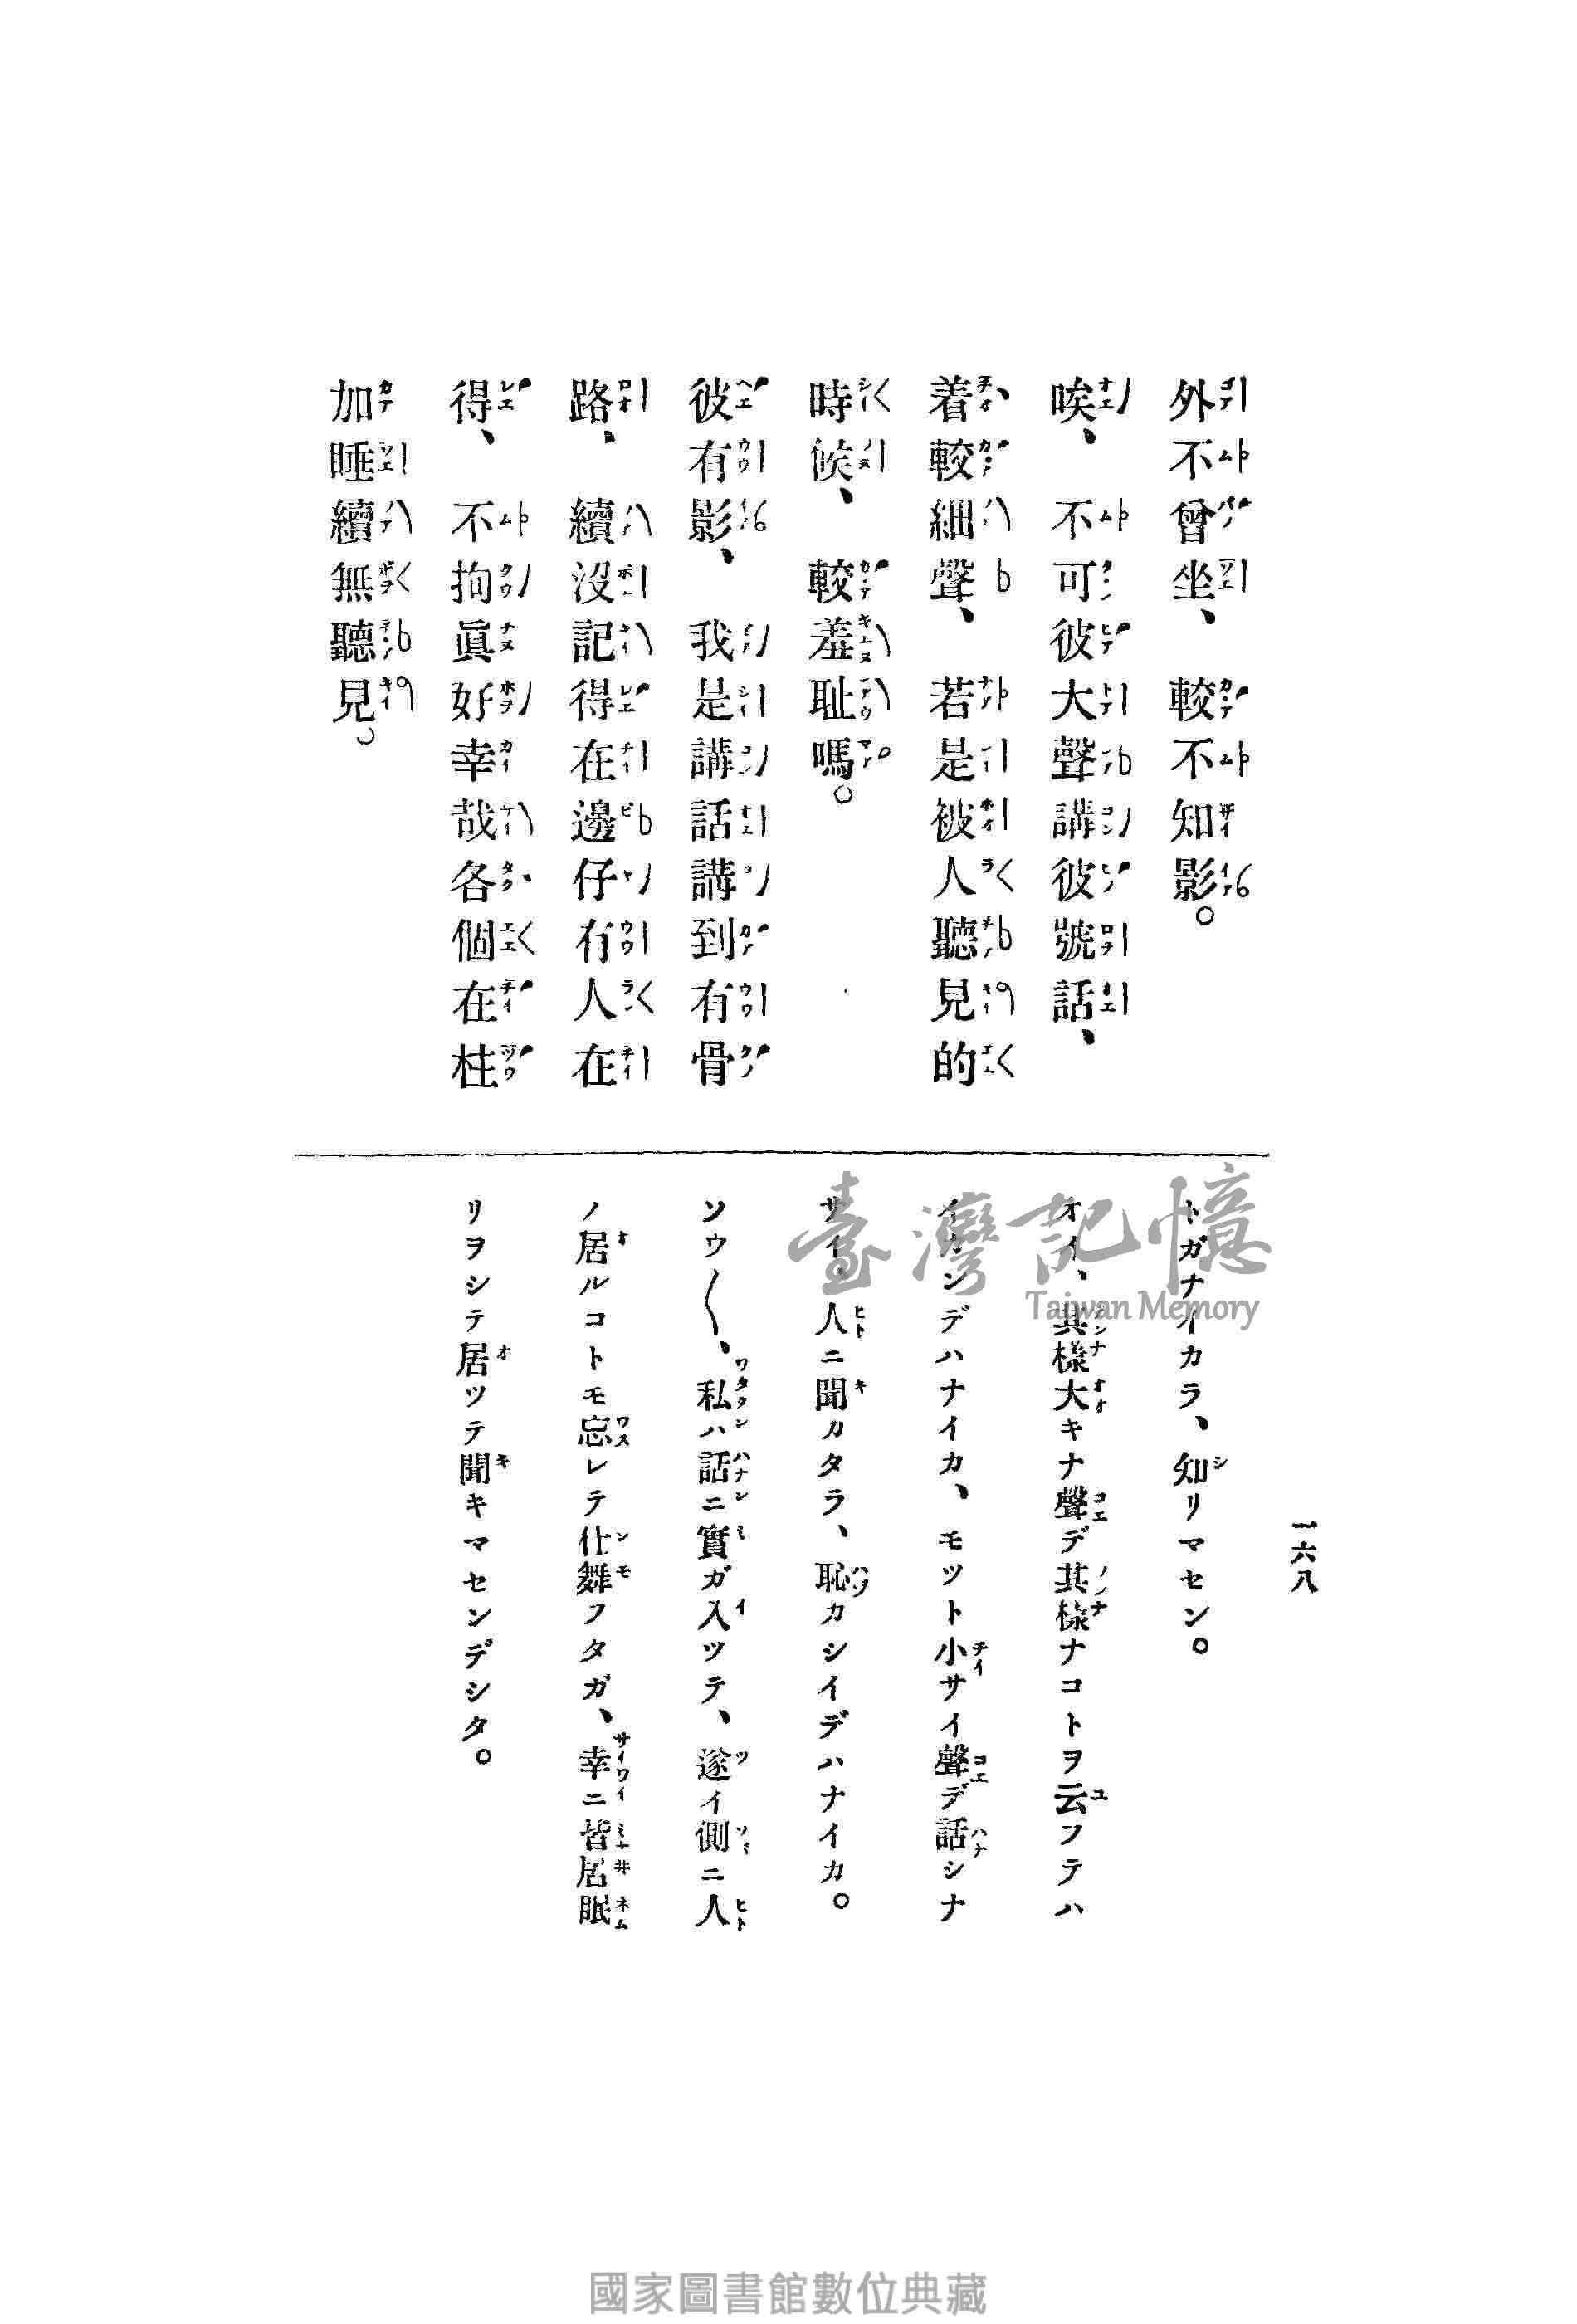 外不曾坐、較不知影。
唉、不可彼大聲講彼號話、
着較細聲、若是被人聽見的
時候、較羞耻嗎。
彼有影、我是講話講到有骨
路、續沒記得在邊仔有人在
得、不拘眞好幸哉各個在柱
加睡續無聽見。
一六八
トガナイカラ、知リマセン。
オイ、其樣大キナ聲デ其樣ナコトヲ云フテハ
イカンデハナイカ、モット小サイ聲デ話シナ
サイ、人ニ聞カタラ、恥カシイデハナイカ。
ソウ〱、私ハ話ニ實ガ入ツテ、遂イ側ニ人
ノ居ルコトモ忘レテ仕舞フタガ、幸ニ皆居眠
リヲシテ居ツテ聞キマセンデシタ。
臺灣記憶
Taiwan Memory
國家圖書館數位典藏